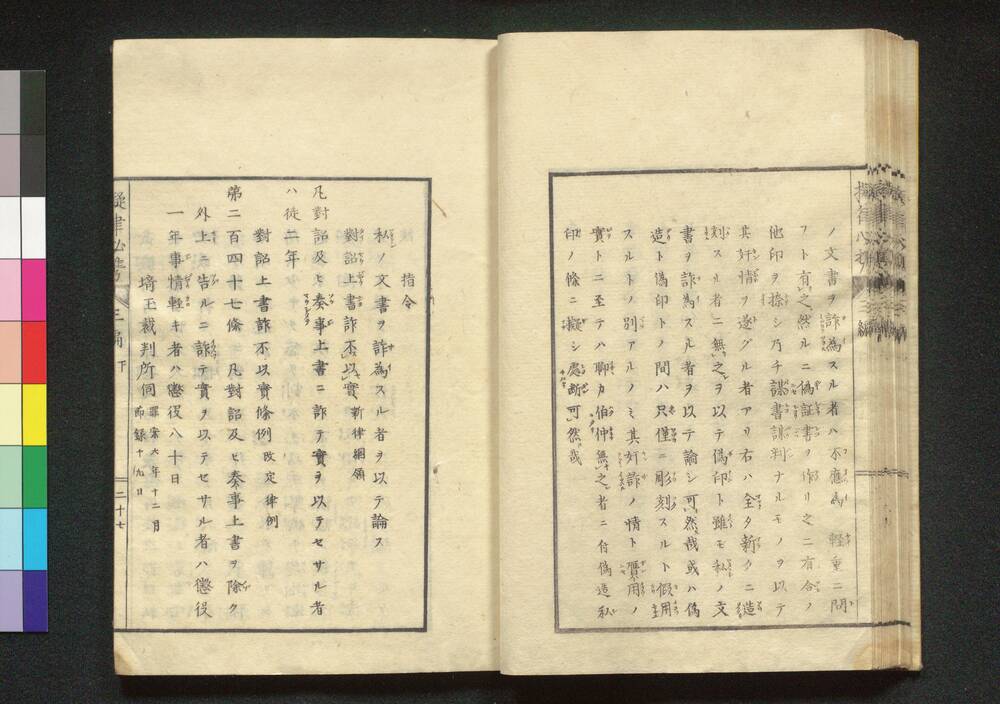 ノ文書ヲ詐為スル者ハ不應為軽重ニ問
フト有之然ルニ偽証書ヲ作リ之ニ有合ノ
他印ヲ捺シ乃チ謀書謀判ナルモノヲ以テ
其奸情ヲ遂グル者アリ右ハ全タ新タニ造
刻スル者ニ無之ヲ以テ偽印ト雖モ私ノ文
書ヲ詐為スル者ヲ以テ論シ可然哉或ハ偽
造ト偽印トノ間ハ只僅ニ彫刻スルト假用
スルトノ別アルノミ其奸詐ノ情ト實用ノ
實トニ至テハ聊カ伯仲無之者ニ付偽造私
印ノ條ニ擬シ處断可然哉
指令
私ノ文書ヲ詐為スル者ヲ以テ論ス
對詔上書詐不以實 新律綱領
凡對詔及ヒ奏事上書ニ詐テ實ヲ以テセサル者
ハ徒二年
對詔上書詐不以實條例 改定律例
第二百四十七條 凡對詔及ヒ奏事上書ヲ除ク
外上ニ告ルニ詐テ實ヲ以テセサル者ハ懲役
一年事情軽キ者ハ懲役八十日
埼玉裁判所伺 六年十二月 十九日
擬律必携 三編 下
二十七